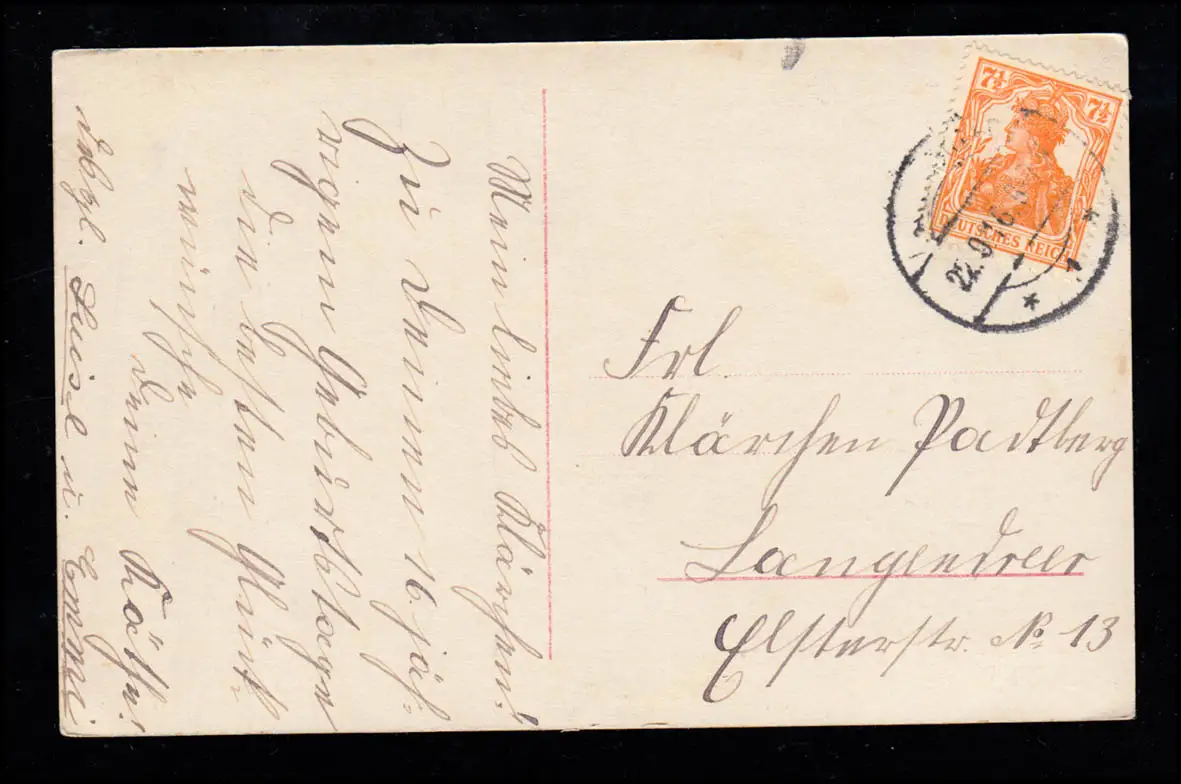 Mein liebes Klärchen!
Zu Deinem 16. jäh-
rigen Geburtstage
die besten Glück-
wünsche
Deine Käthe.
dsgl. Luise u. Emmi
7½ 7½
DEUTSCHES REICH
22.9.16
Frl.
Klärchen Padtberg
Langendreer
Elsterstr. No 13